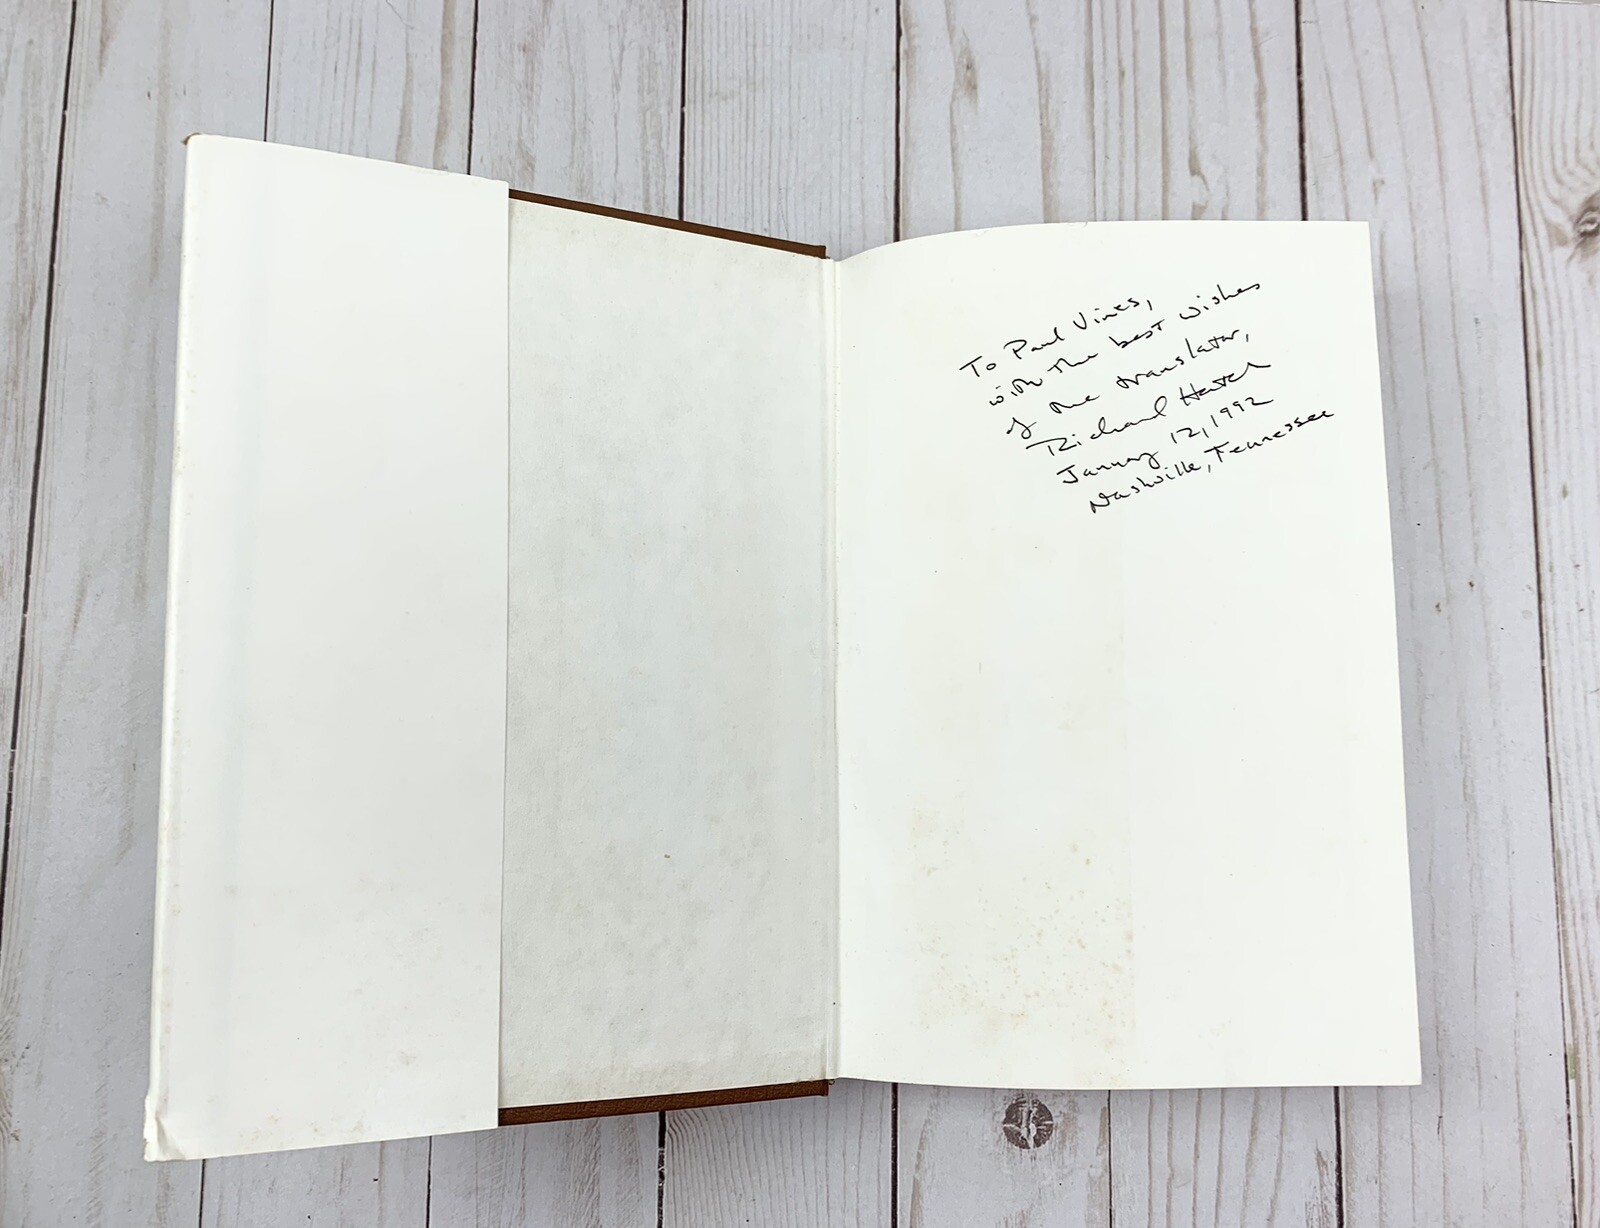 To Paul Vines,
with the best wishes
of the translator,
Richard Hatch
January 12, 1992
Nashville, Tennessee